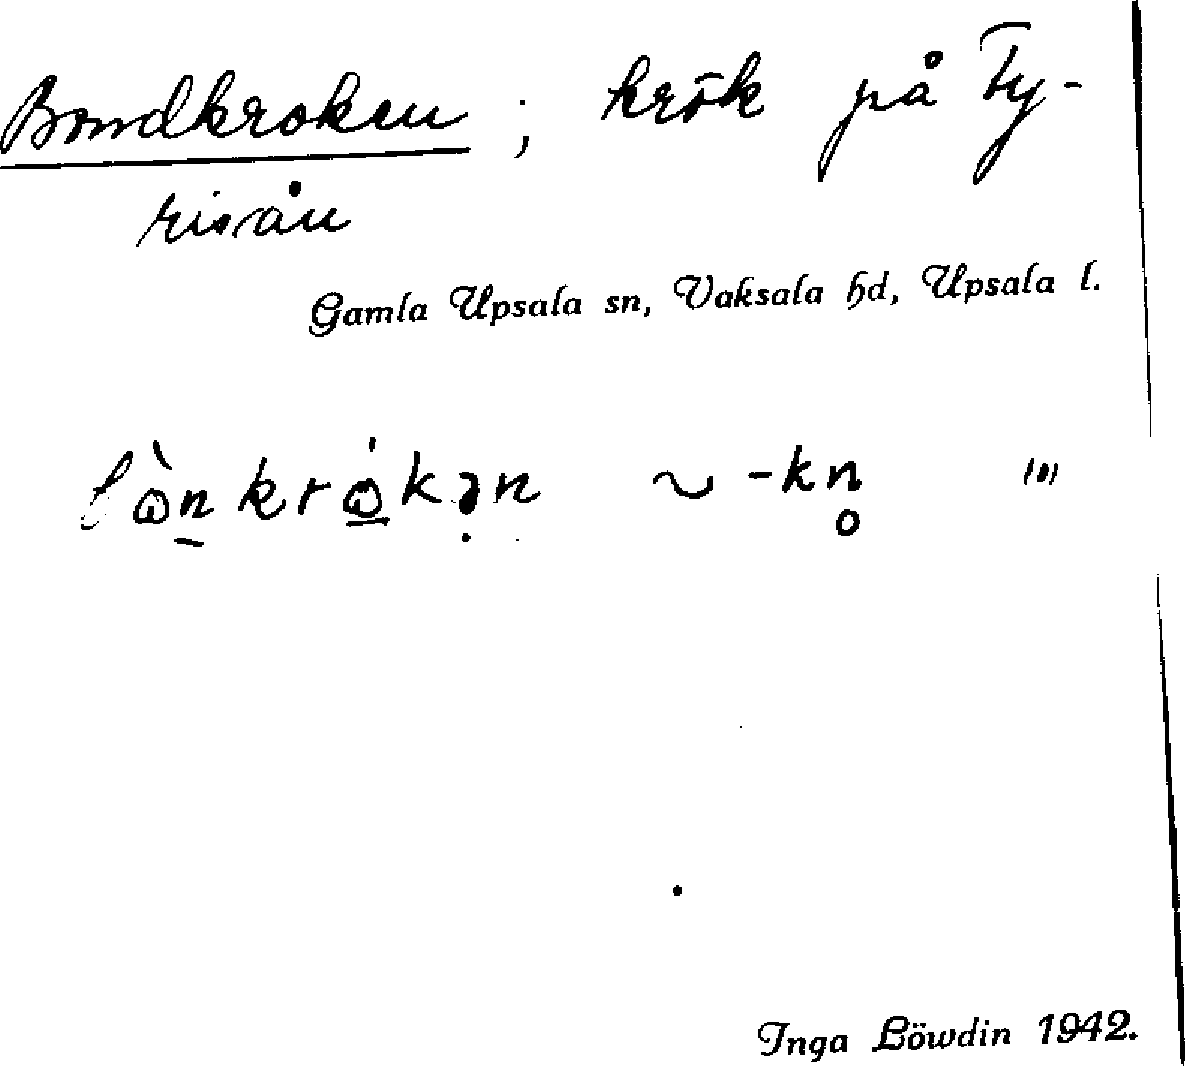 Bondkroken ; krök på Fy-
risån
Gamla Upsala sn, Vaksala hd, Upsala l.
~ -kn̥
Inga Löwdin 1942.